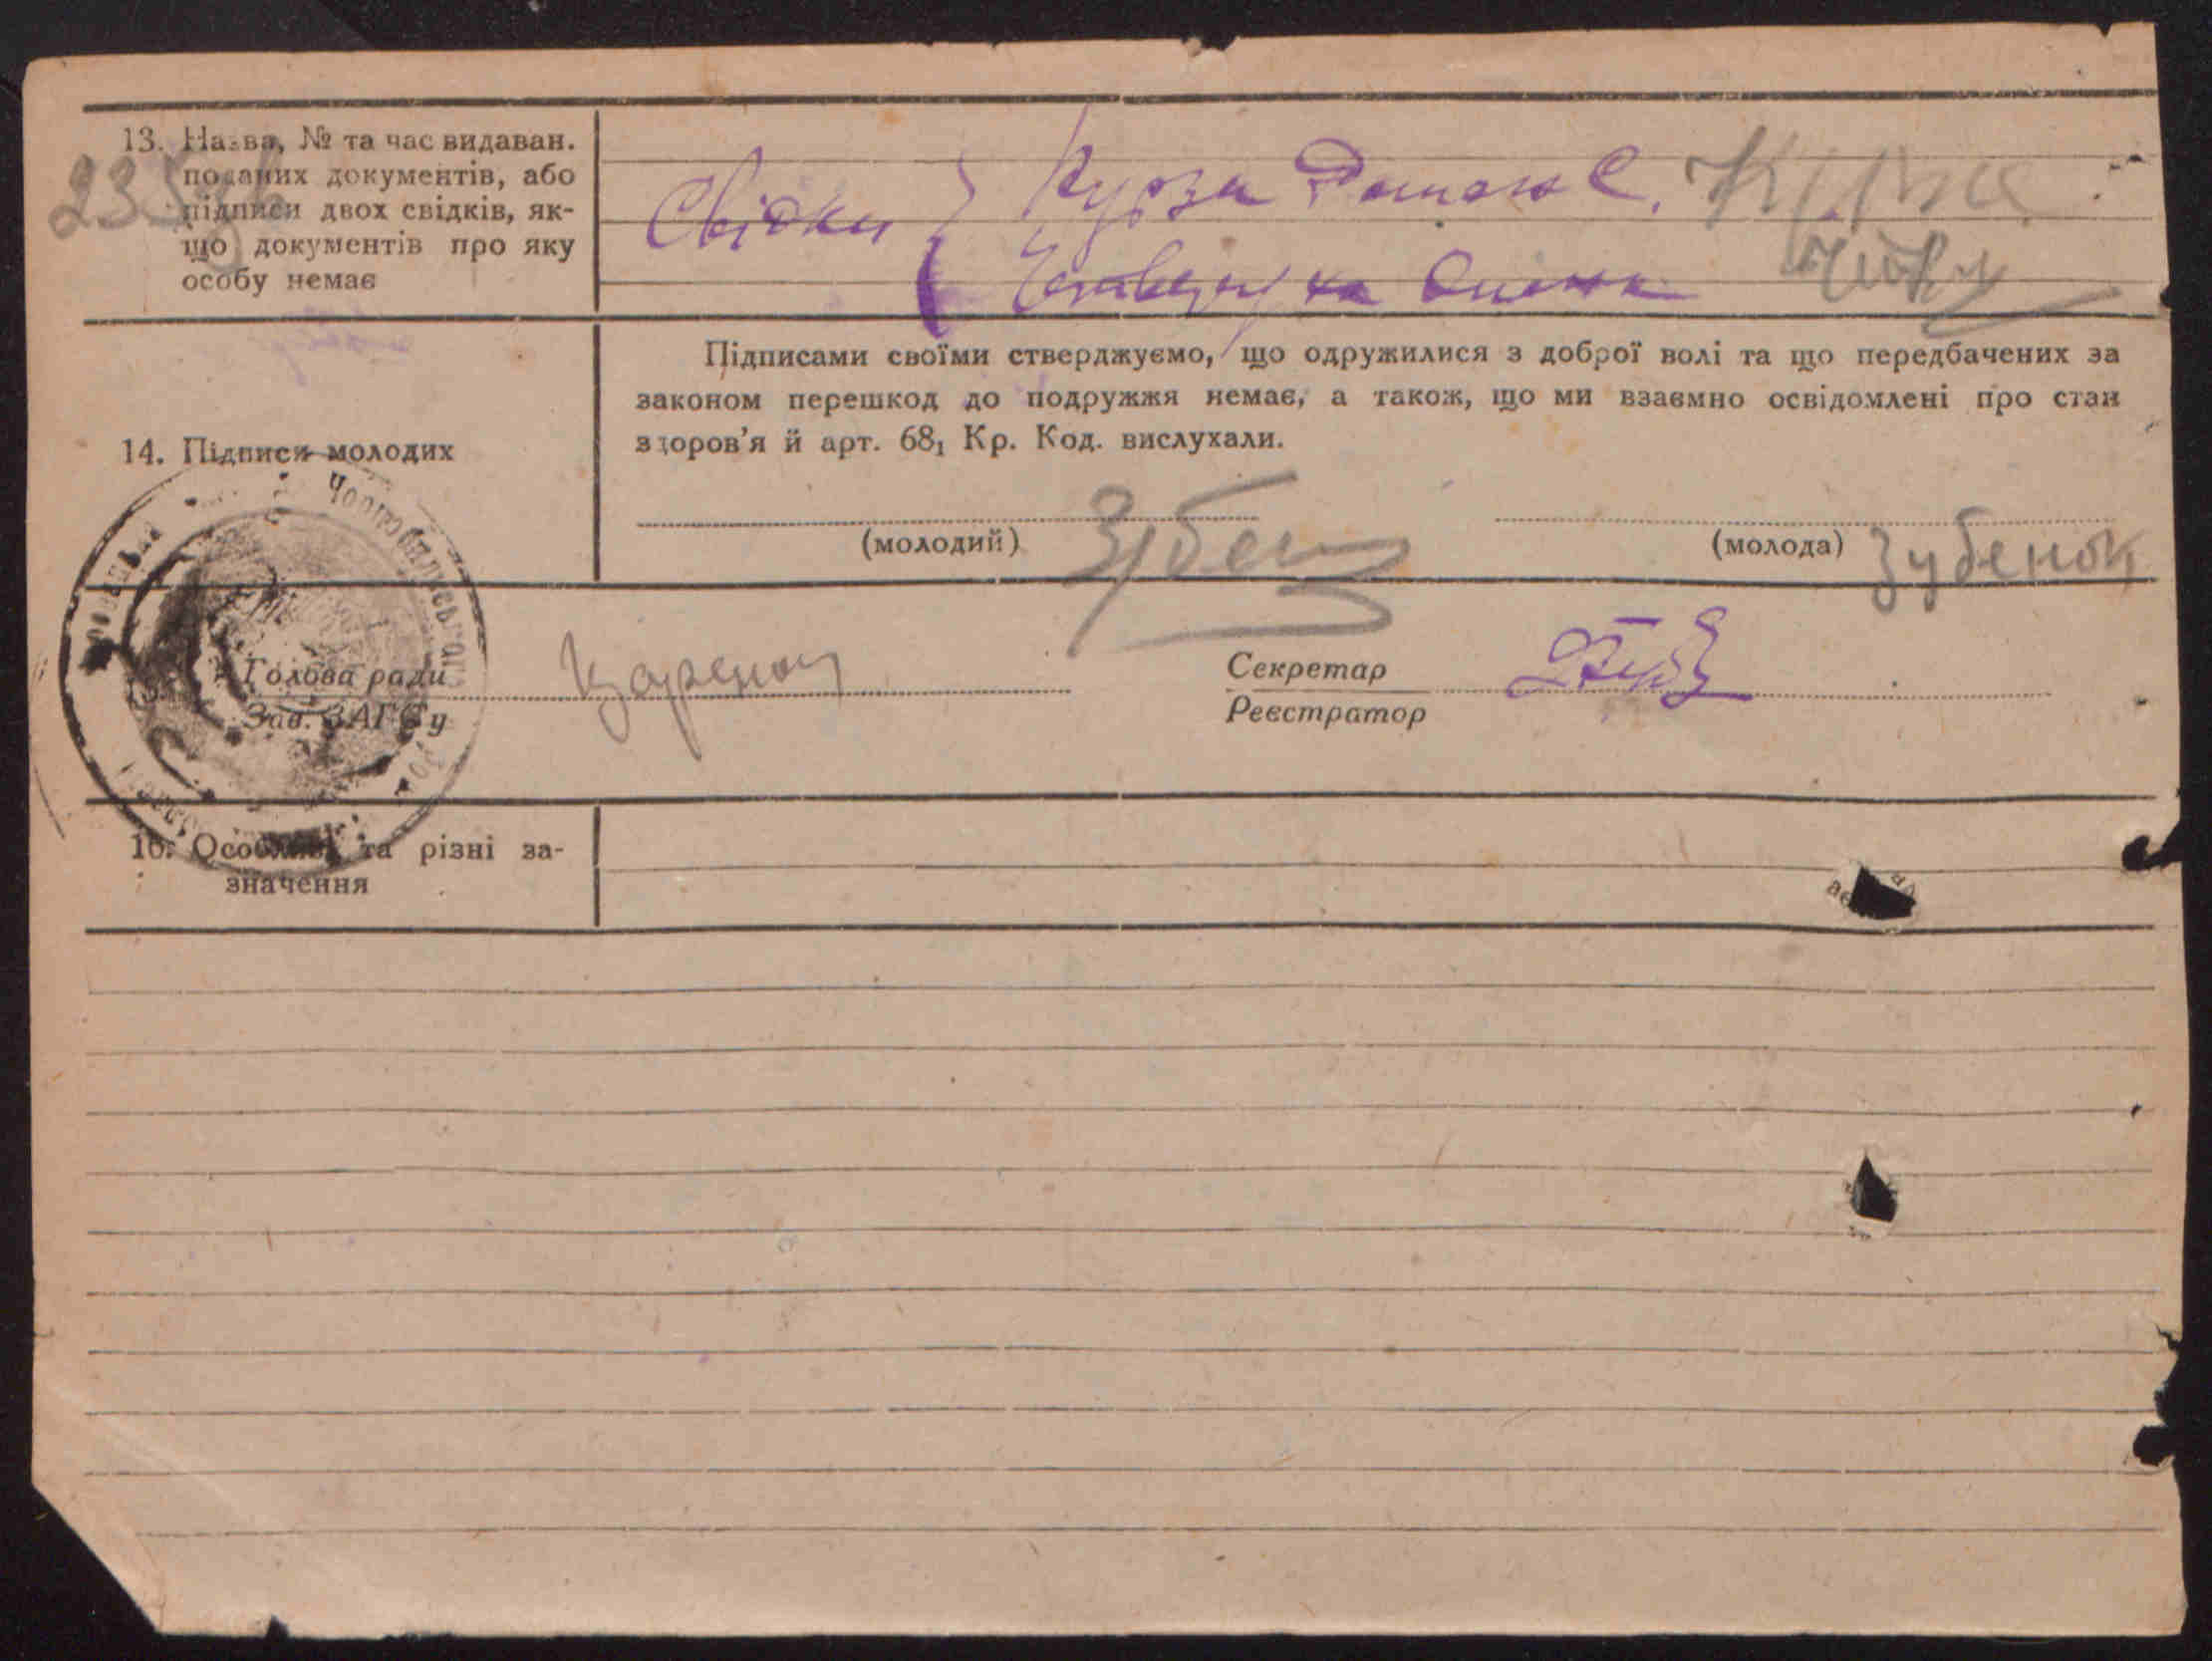 13. Назва, № та час видаван.
поданих документів, або
підписи двох свідків, як-
що документів про яку
особу немає
235
Свідки
Курза Роман С.
Підписами своїми стверджуємо, що одружилися з доброї волі та що передбачених за
законом перешкод до подружжя немає, а також, що ми взаємно освідомлені про стан
здоров'я й арт. 68₁ Кр. Код. вислухали.
14. Підписи молодих
(молодий) Зубен
(молода) Зубенок
Голова ради
Зав. ЗАГСу
Секретар
Реєстратор
16. Особливі та різні за-
значення